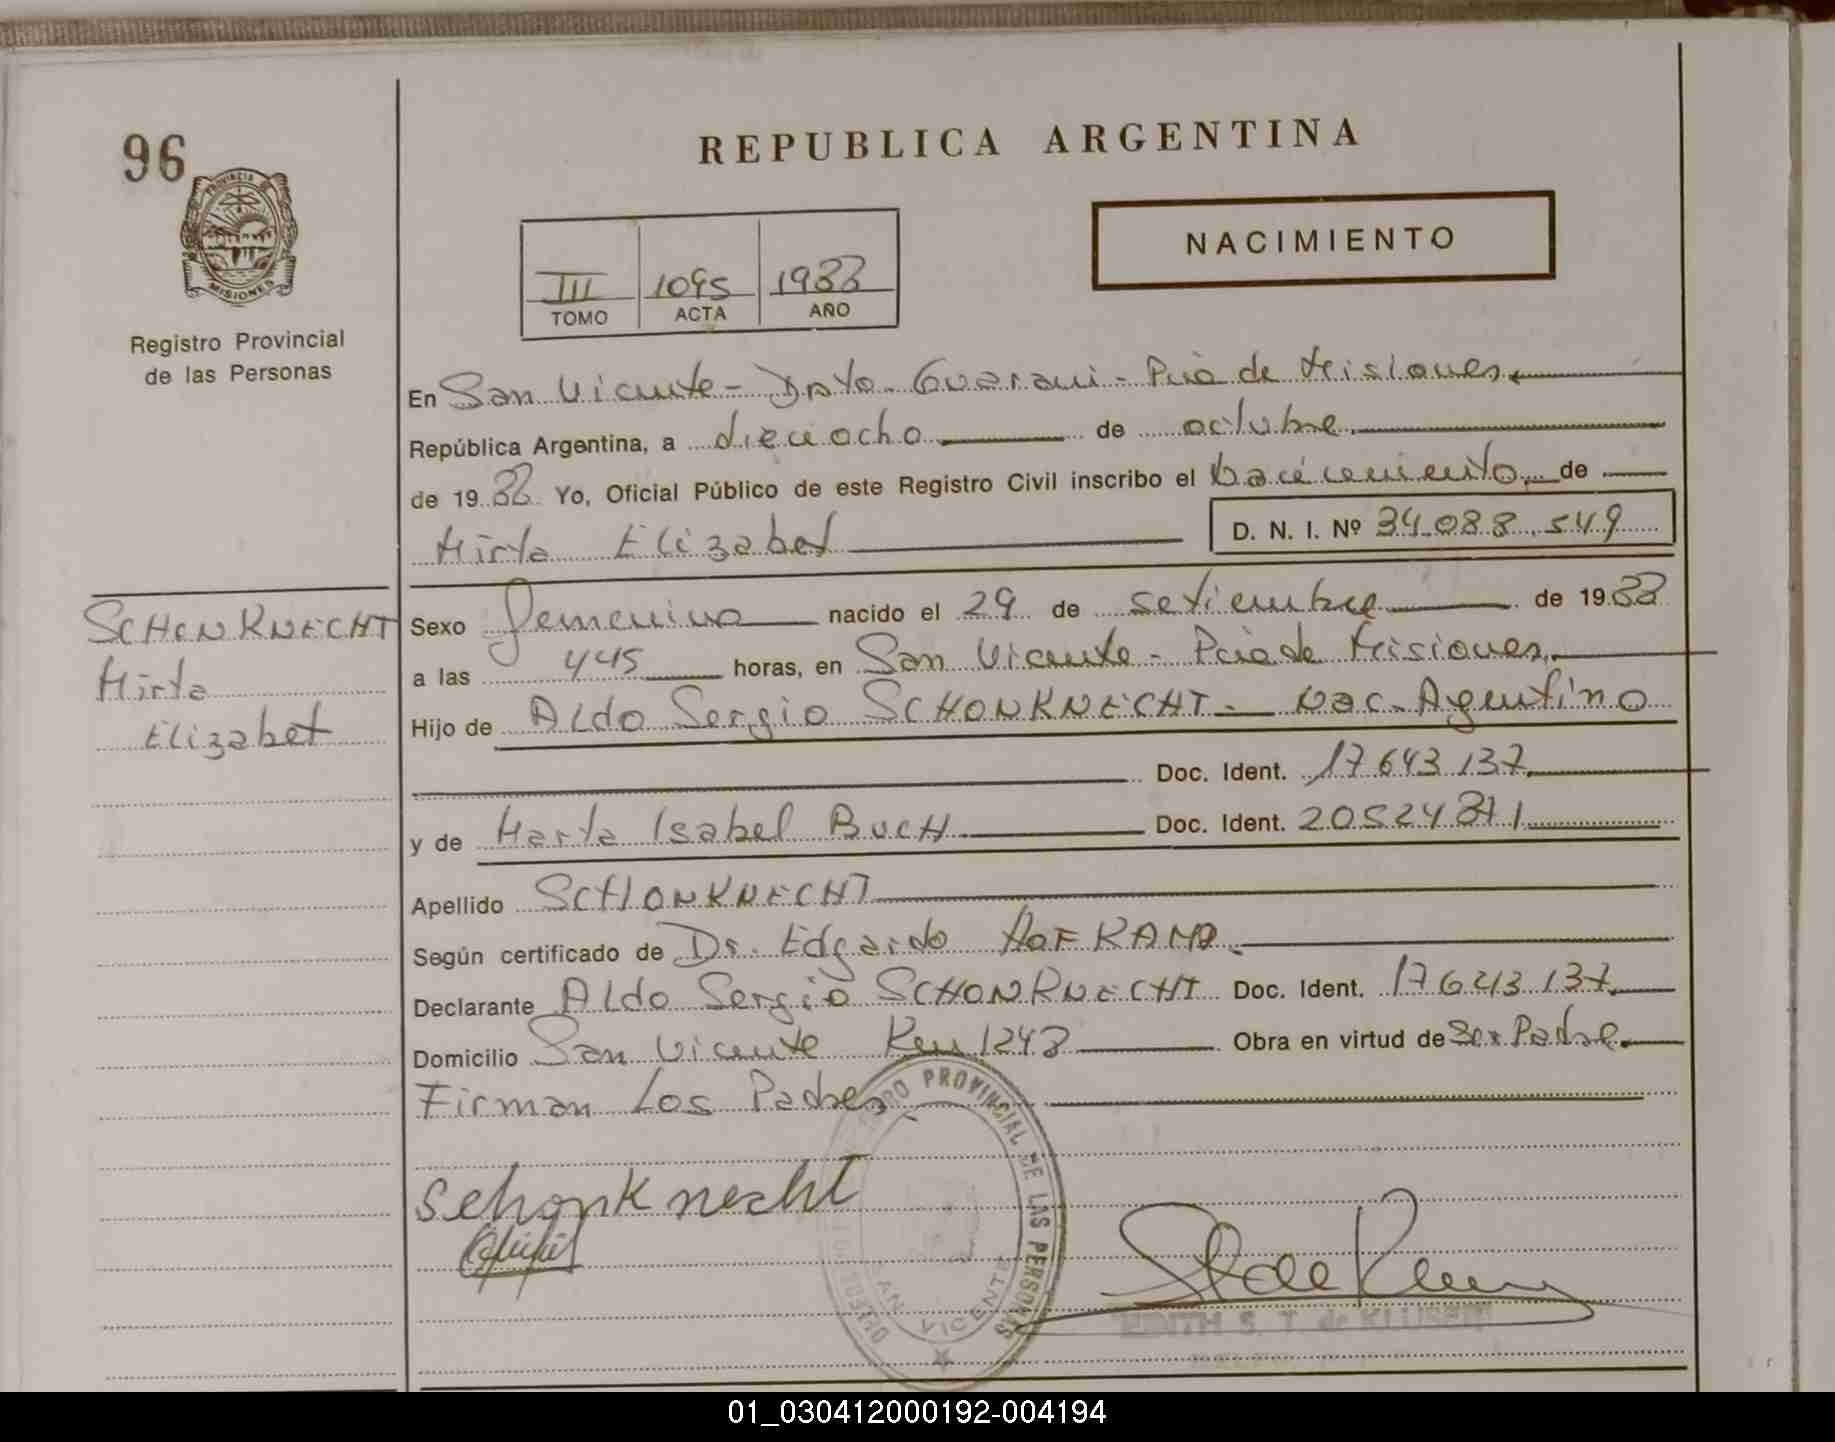 96
REPUBLICA ARGENTINA
PROVINCIA
MISIONES
NACIMIENTO
III 1095 1988
TOMO ACTA AÑO
Registro Provincial
de las Personas
En San Vicente - Dpto. Guarani - Pcia de Misiones
República Argentina, a dieciocho de octubre
de 1988 Yo, Oficial Público de este Registro Civil inscribo el nacimiento de
Mirta Elizabet D. N. I. Nº 34.088.549
SCHONKNECHT
Mirta
Elizabet
Sexo femenino nacido el 29 de setiembre de 1988
a las 445 horas, en San Vicente - Pcia de Misiones
Hijo de Aldo Sergio SCHONKNECHT - Nac. Argentino
Doc. Ident. 17 643 137
y de Marta Isabel BUCH Doc. Ident. 20524871
Apellido SCHONKNECHT
Según certificado de Dr. Edgardo HOFKAMP
Declarante Aldo Sergio SCHONKNECHT Doc. Ident. 17 643 137
Domicilio San Vicente Km 1248 Obra en virtud de Ser Padre
Firman Los Padres
REGISTRO PROVINCIAL DE LAS PERSONAS
SAN VICENTE
Schonknecht
EDITH S. T. de KLUSENER
01_030412000192-004194